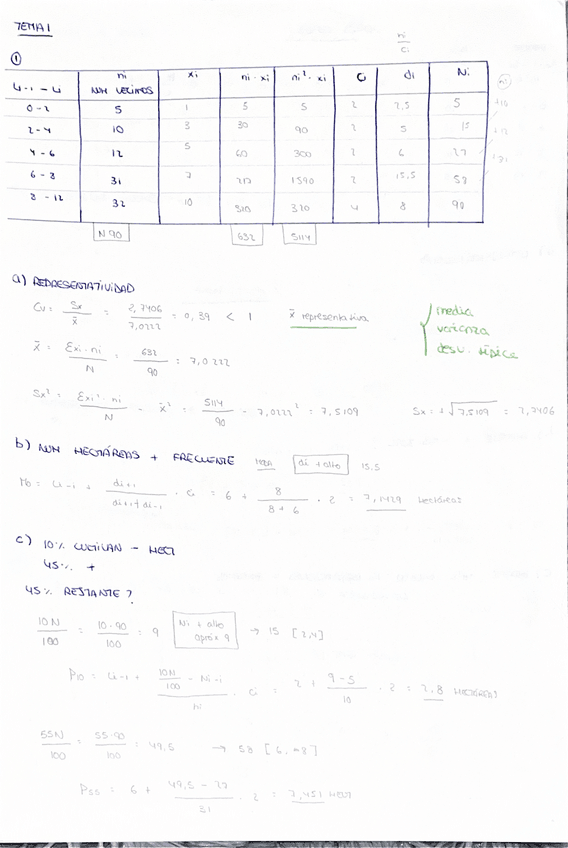 TEMA 1
①
ni/ci
Li-1 - Li | ni NUM VECINOS | xi | ni · xi | ni² · xi | Ci | di | Ni
0 - 2 | 5 | 1 | 5 | 5 | 2 | 2,5 | 5
2 - 4 | 10 | 3 | 30 | 90 | 2 | 5 | 15
4 - 6 | 12 | 5 | 60 | 300 | 2 | 6 | 27
6 - 8 | 31 | 7 | 217 | 1590 | 2 | 15,5 | 58
8 - 12 | 32 | 10 | 320 | 320 | 4 | 8 | 90
N 90 632 5114
a) REPRESENTATIVIDAD
CV = Sx/x̄ = 2,7406/7,0222 = 0,39 < 1 x̄ representativa
media
varianza
desv. típica
x̄ = Σxi·ni/N = 632/90 = 7,0222
Sx² = Σxi²·ni/N - x̄² = 5114/90 - 7,0222² = 7,5109 Sx = +√7,5109 = 2,7406
b) NUM HECTÁREAS + FRECUENTE moda di + alto 15.5
Mo = Li-1 + di+1/di+1+di-1 · Ci = 6 + 8/8+6 · 2 = 7,1429 hectáreas
c) 10% CULTIVAN - HECT
45% +
45% RESTANTE ?
10N/100 = 10·90/100 = 9 Ni + alto aprox 9 → 15 [2,4]
P10 = Li-1 + (10N/100 - Ni-1)/Ni · Ci = 2 + 9-5/10 · 2 = 2,8 HECTÁREAS
55N/100 = 55·90/100 = 49,5 → 58 [6, 8]
P55 = 6 + 49,5 - 27/31 · 2 = 7,451 HECT